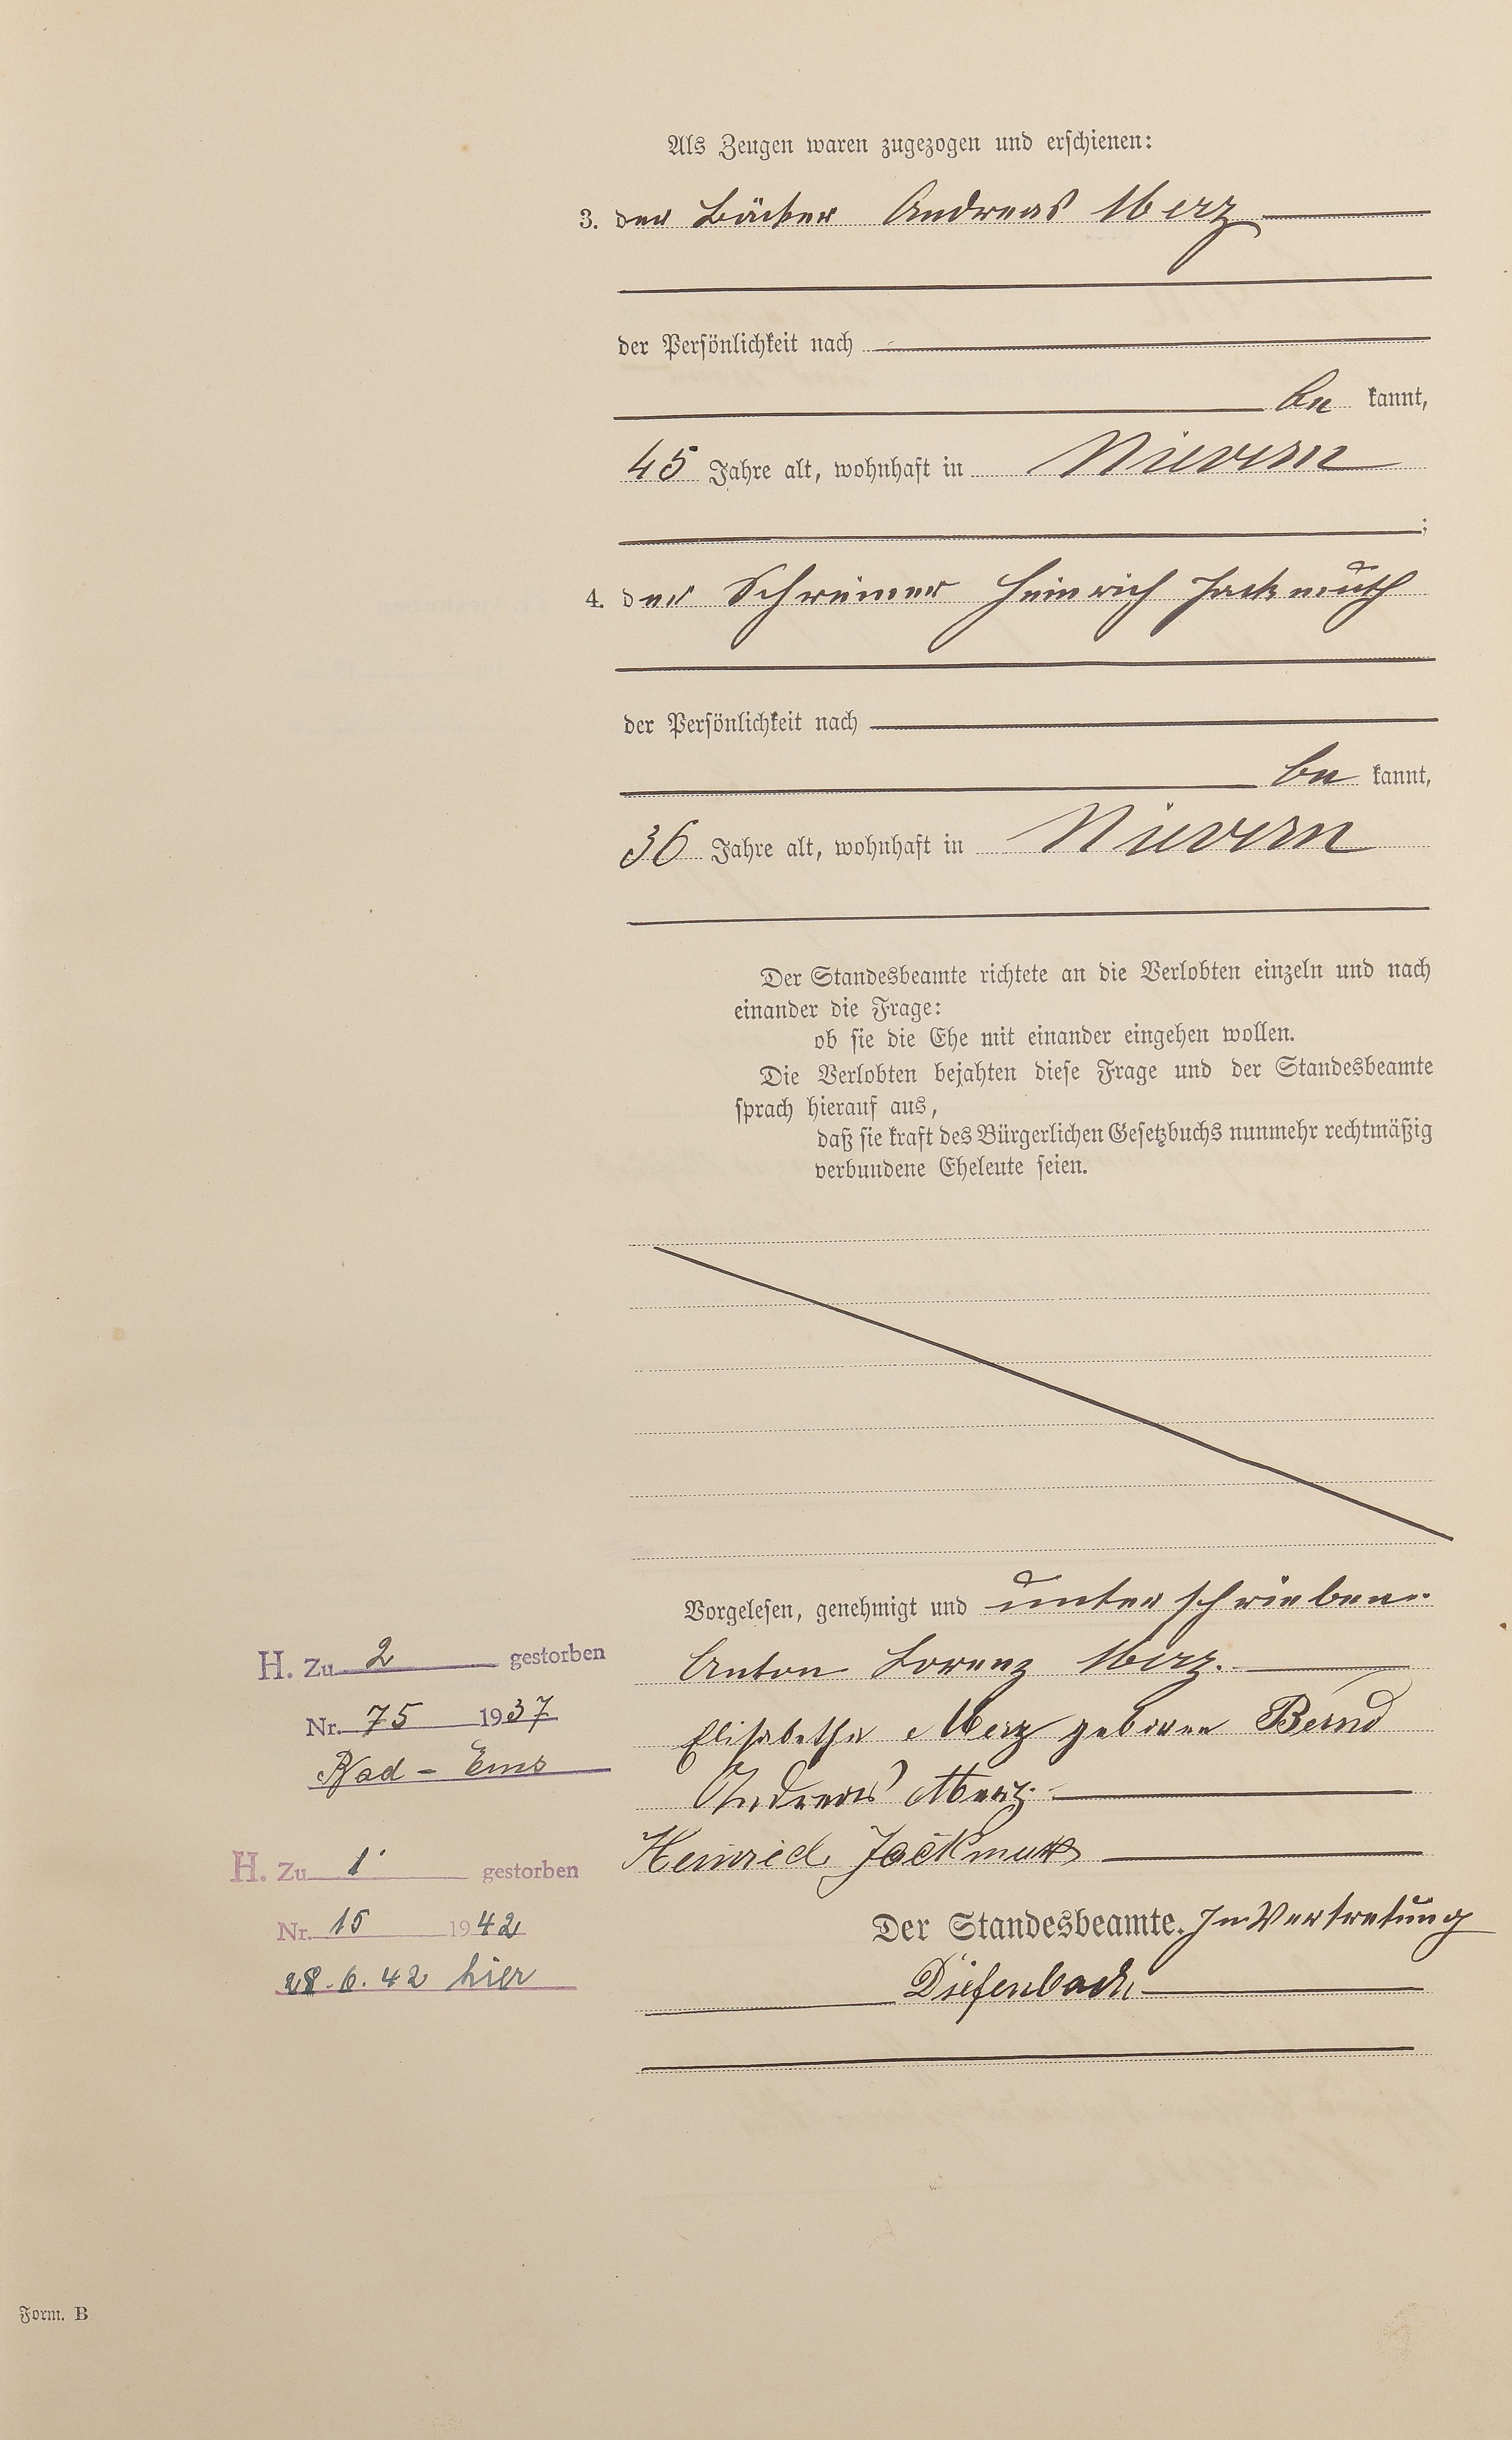 Als Zeugen waren zugezogen und erschienen:
3. der Bäcker Andreas Merz
der Persönlichkeit nach
be kannt,
45 Jahre alt, wohnhaft in Nievern
;
4. der Schreiner Heinrich Jackmuth
der Persönlichkeit nach
be kannt,
36 Jahre alt, wohnhaft in Nievern
Der Standesbeamte richtete an die Verlobten einzeln und nach
einander die Frage:
ob sie die Ehe mit einander eingehen wollen.
Die Verlobten bejahten diese Frage und der Standesbeamte
sprach hierauf aus,
daß sie kraft des Bürgerlichen Gesetzbuchs nunmehr rechtmäßig
verbundene Eheleute seien.
Vorgelesen, genehmigt und unterschrieben.
Anton Lorenz Merz.
Elisabetha Merz geboren Bernd
Andreas Merz.
Heinrich Jackmuth
Der Standesbeamte. In Vertretung
Diefenbach
H. Zu 2 gestorben
Nr. 75 1937
Bad - Ems
H. Zu 1 gestorben
Nr. 15 1942
28.6.42 hier
Form. B